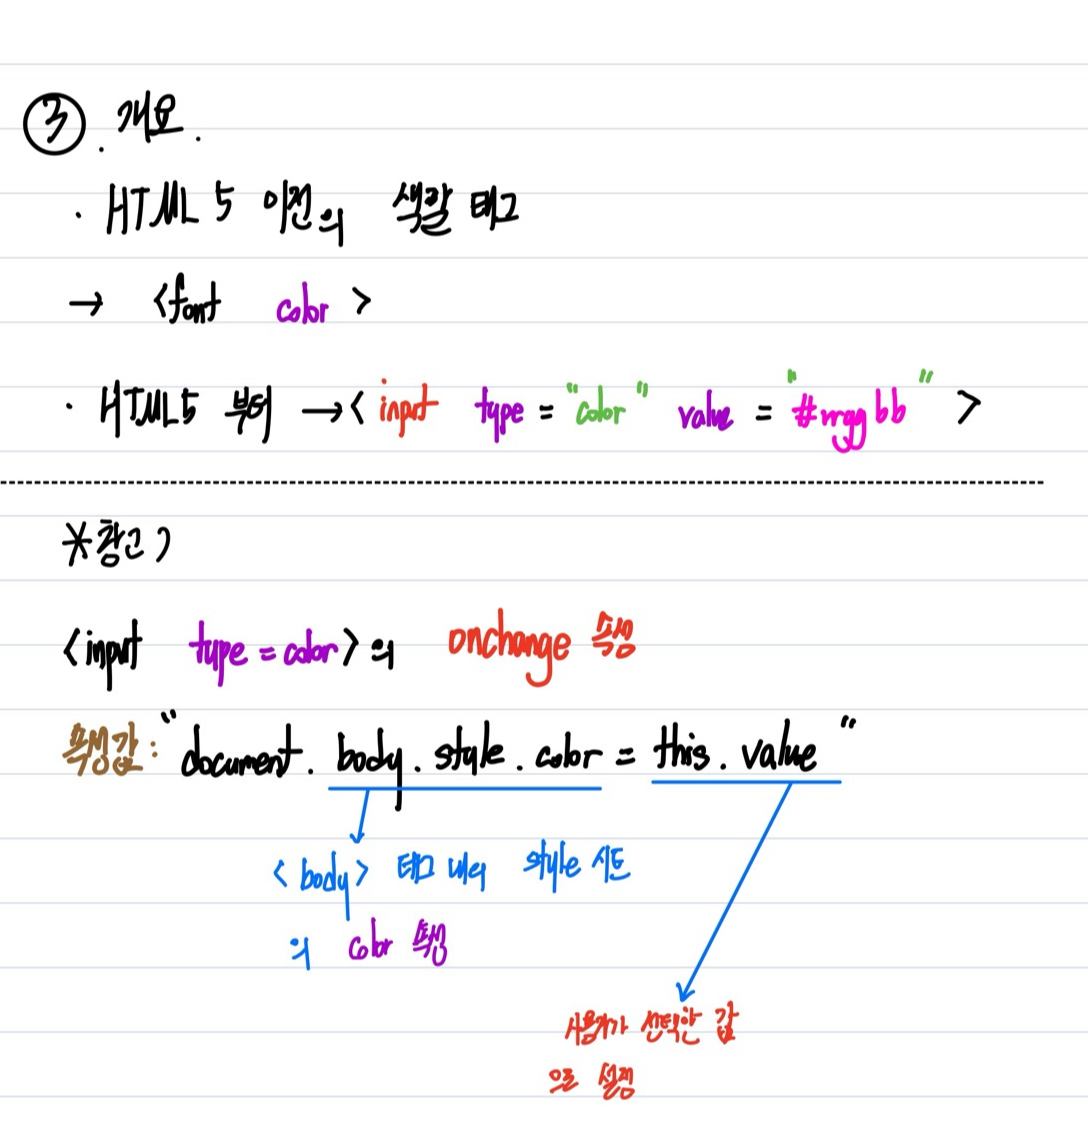 ③. 개요.
· HTML 5 이전의 색깔 태그
→ <font color >
· HTML5 부터 → < input type = "color" value = "#rrggbb" >
※참고)
<input type = color>의 onchange 속성
속성값 : "document. body. style. color = this. value"
< body> 태그 내의 style 시트
의 color 속성
사용자가 선택한 값
으로 설정